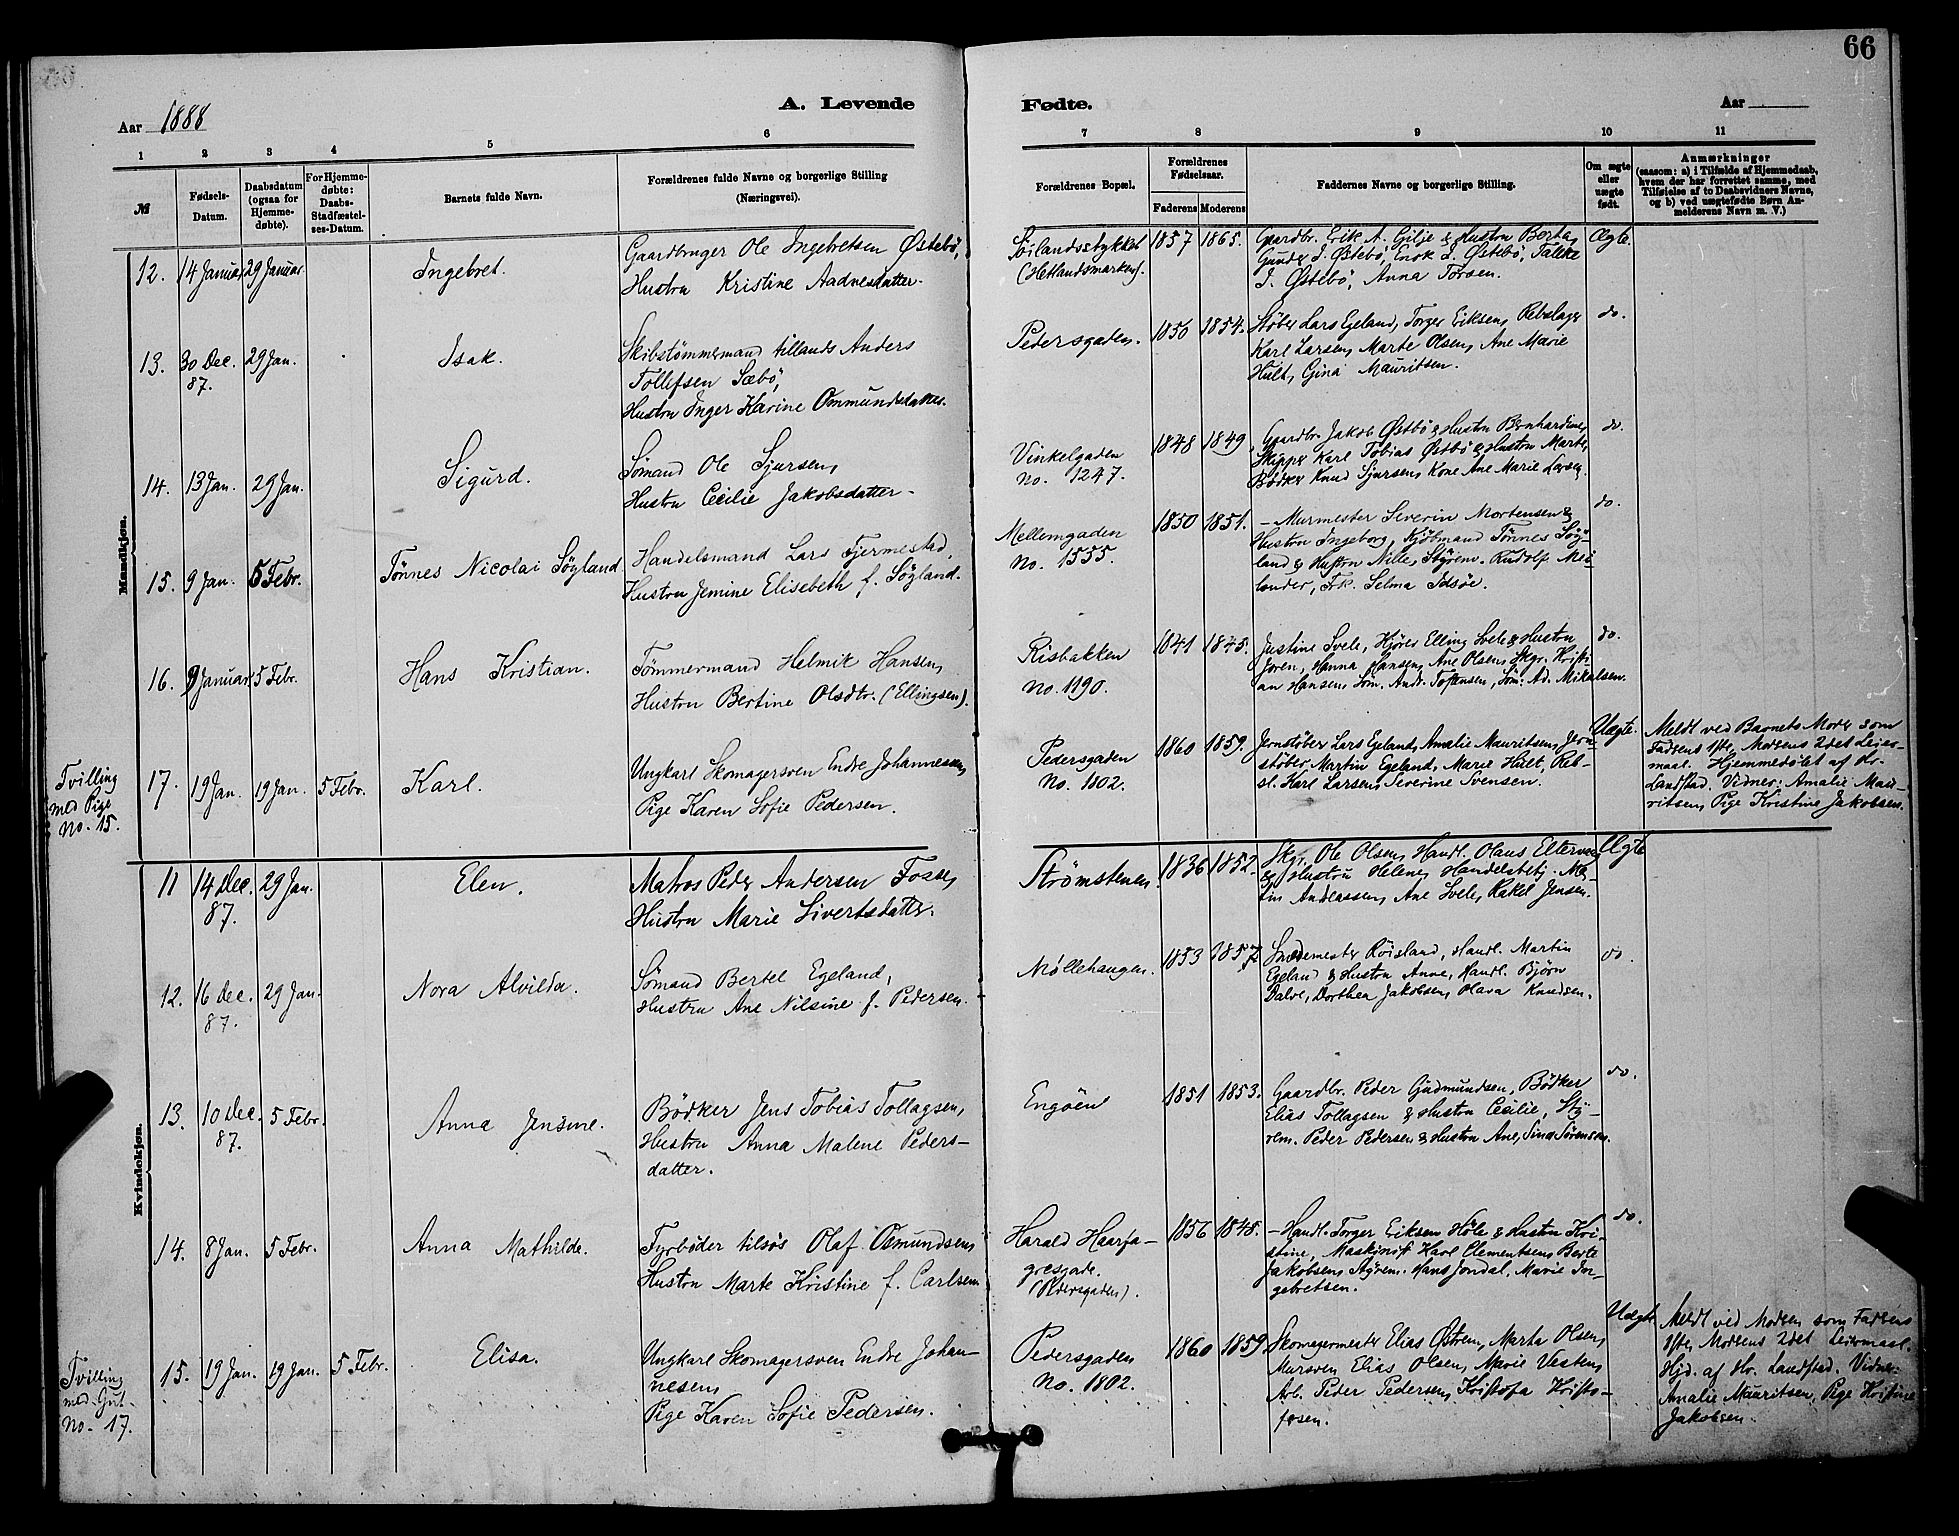 66
Aar 1888
A. Levende
Fødte.
Aar
1 2 3 4 5 6 7 8 9 10 11
№
Fødsels-
Datum.
Daabsdatum
(ogsaa for
Hjemme-
døbte).
For Hjemme-
døbte:
Daabs-
Stadfæstel-
ses-Datum.
Barnets fulde Navn.
Forældrenes fulde Navne og borgerlige Stilling
(Næringsvei).
Forældrenes Bopæl.
Forældrenes
Fødselsaar.
Faderens Moderens
Faddernes Navne og borgerlige Stilling.
Om ægte
eller
uægte
født.
Anmærkninger
(saasom: a) i Tilfælde af Hjemmedaab,
hvem der har forrettet samme, med
Tilføielse af to Daabsvidners Navne,
og b) ved uægtefødte Børn An-
melderens Navn m. V.)
Mandkjøn.
12. 14 Januar 29 Januar. Ingebret.
Gaardbruger Ole Ingebretsen Østebö,
Hustru Kristine Aadnesdatter.
Söilandsstykket
(Hetlandsmarken).
1857 1865.
Gaardbr. Erik A. Gilje & Hustru Berta,
Gunder I. Østebö, Enok I. Østebö, Talike
I. Østebö, Anna Torsen.
Ægte.
13. 30 Dec. 29 Jan. Isak.
87.
Skibstømmermand tillands Anders
Tollefsen Sæbö,
Hustru Inger Karine Ommundsdatter.
Pedersgaden.
1850 1854.
Støber Lars Egeland, Torger Eriksen, Rebslager
Karl Larsen, Marte Olsen, Ane Marie
Hult, Gina Mauritsen.
do.
14. 13 Jan. 29 Jan. Sigurd.
Sømand Ole Sjursen,
Hustru Cecilie Jakobsdatter.
Vinkelgaden
No. 1247.
1848 1849
Gaardbr. Jakob Østbö & Hustru Bernhardine,
Skipper Karl Tobias Østbö & Hustru Marte,
Bödker Knud Sjursen, Kone Ane Marie Larsen.
do.
15. 9 Jan. 5 Febr. Tönnes Nicolai Sögland.
Handelsmand Lars Tjermestad,
Hustru Jemine Elisebeth f. Sögland.
Mellemgaden
No. 1555.
1850 1851.
– Murmester Severin Mortensen &
Hustru Ingeborg, Kjöbmand Tönnes Sög-
land & Hustru Nille, Styrem. Rudolf Mei-
lænder, Frk. Selma Idsöe.
do.
16. 9 Januar 5 Febr. Hans Kristian.
Tømmermand Helmik Hansen,
Hustru Bertine Olsdtr. (Ellingsen).
Risbakken
No. 1190.
1841 1845.
Justine Svele, Kjörer Elling Svele & Hustru
Joren, Hanna Hansen, Ane Olsen, Skgr. Kristi-
an Hansen, Söm. Andr. Toftensen, Söm. Ad. Mikalsen.
do.
Tvilling
med Pige
No. 15.
17. 19 Jan. 19 Jan. 5 Febr. Karl.
Ungkarl Skomagersven Endre Johannesen,
Pige Karen Sofie Pedersen.
Pedersgaden
No. 1802.
1860 1859.
Jernstöber Lars Egeland, Amalie Mauritsen, Jern-
stöber Martin Egeland, Marie Hult, Reb-
sl. Karl Larsen, Severine Svensen.
Uægte.
Meldt ved Barnets Moder som
Faderens 1ste, Moderens 2det Leier-
maal. Hjemmedöbt af Hr.
Landstad. Vidner: Amalie Mau-
ritsen, Pige Kristine Jakobsen.
Kvindekjøn.
11 14 Dec. 29 Jan. Elen.
87.
Matros Peder Andersen Fosse,
Hustru Marie Sivertsdatter.
Strømstenen.
1836 1852.
Skgr. Ole Olsen, Handl. Olaus Eltervaag
& Hustru Helene, Handelsbetj. Mar-
tin Andeassen, Ane Svele, Rakel Jensen.
Ægte
12. 16 Dec. 29 Jan. Nora Alvilda.
87.
Sømand Bertel Egeland,
Hustru Ane Nilsine f. Pedersen.
Møllehaugen.
1853 1857
Smedemester Röisland, Handl. Martin
Egeland & Hustru Anne, Handl. Björn
Dalve, Dorthea Jakobsen, Olava Knudsen.
do.
13. 10 Dec. 5 Febr. Anna Jensine.
87.
Bödker Jens Tobias Tollagsen,
Hustru Anna Malene Peders-
datter.
Engöen
1851 1853.
Gaardbr. Peder Gudmundsen, Bödker
Elias Tollagsen & Hustru Cecilie, Sty-
rem. Peder Pedersen & Hustru Ane, Sina Sörensen.
do.
14. 8 Jan. 5 Febr. Anna Mathilde.
Fyrböder tilsös Olaf Osmundsen
Hustru Marte Kristine f. Carlsen
Harald Haarfa-
gresgade.
(Pedersgaden).
1856 1848.
– Handl. Torger Eiksen Höle & Hustru Kri-
stine, Maskinist Karl Clementsen, Berte
Jakobsen, Styrem. Hans Jondal, Marie In-
gebretsen.
do.
Tvilling
med Gut
No. 17.
15. 19 Jan. 19 Jan. 5 Febr. Elisa.
Ungkarl Skomagersven Endre Johan-
nesen,
Pige Karen Sofie Pedersen.
Pedersgaden
No. 1802.
1860 1859
Skomagermester Elias Østrem, Marta Olsen,
Mursven Elias Olsen, Marie Vasten,
Arb. Peder Pedersen, Kristofa Kristo-
fersen.
Uægte
Meldt ved Moderen som Faderens
1ste, Moderens 2det Leiermaal.
Hjd. af Hr. Landstad. Vidner:
Amalie Mauritsen, Pige Kristine
Jakobsen.